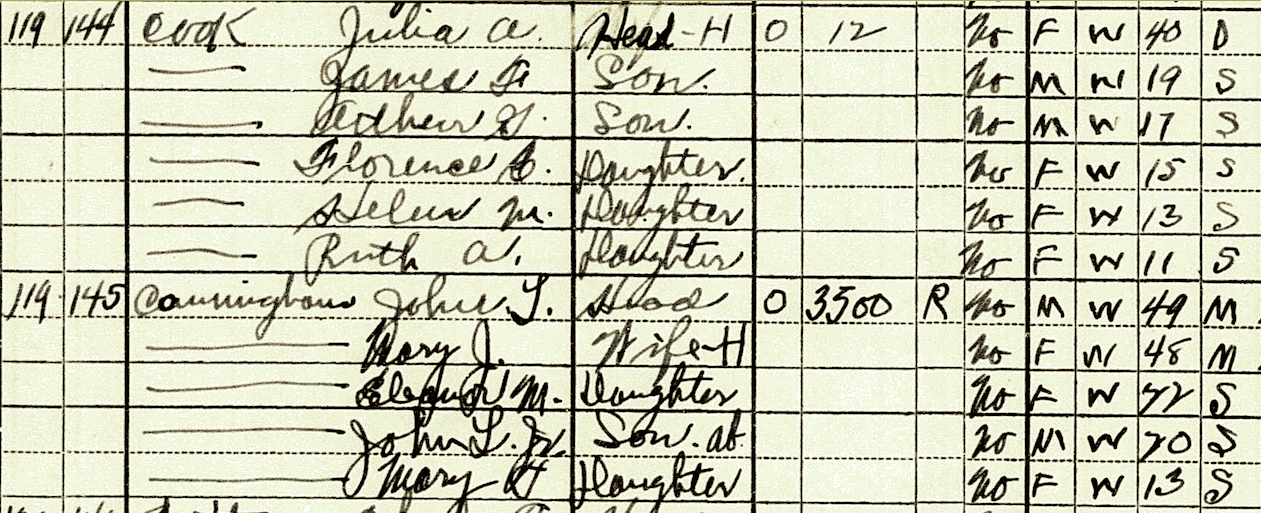 119 144 Cook Julia A. Head-H O 12 No F W 40 D
James F Son. No M W 19 S
Arthur G. Son. No M W 17 S
Florence E. Daughter. No F W 15 S
Helen M. Daughter No F W 13 S
Ruth A. Daughter No F W 11 S
119 145 Cunningham John L. Head O 3500 R No M W 49 M
Mary J. Wife-H No F W 48 M
Eleanor M. Daughter No F W 22 S
John L. Jr. Son. ab No M W 20 S
Mary Daughter No F W 13 S